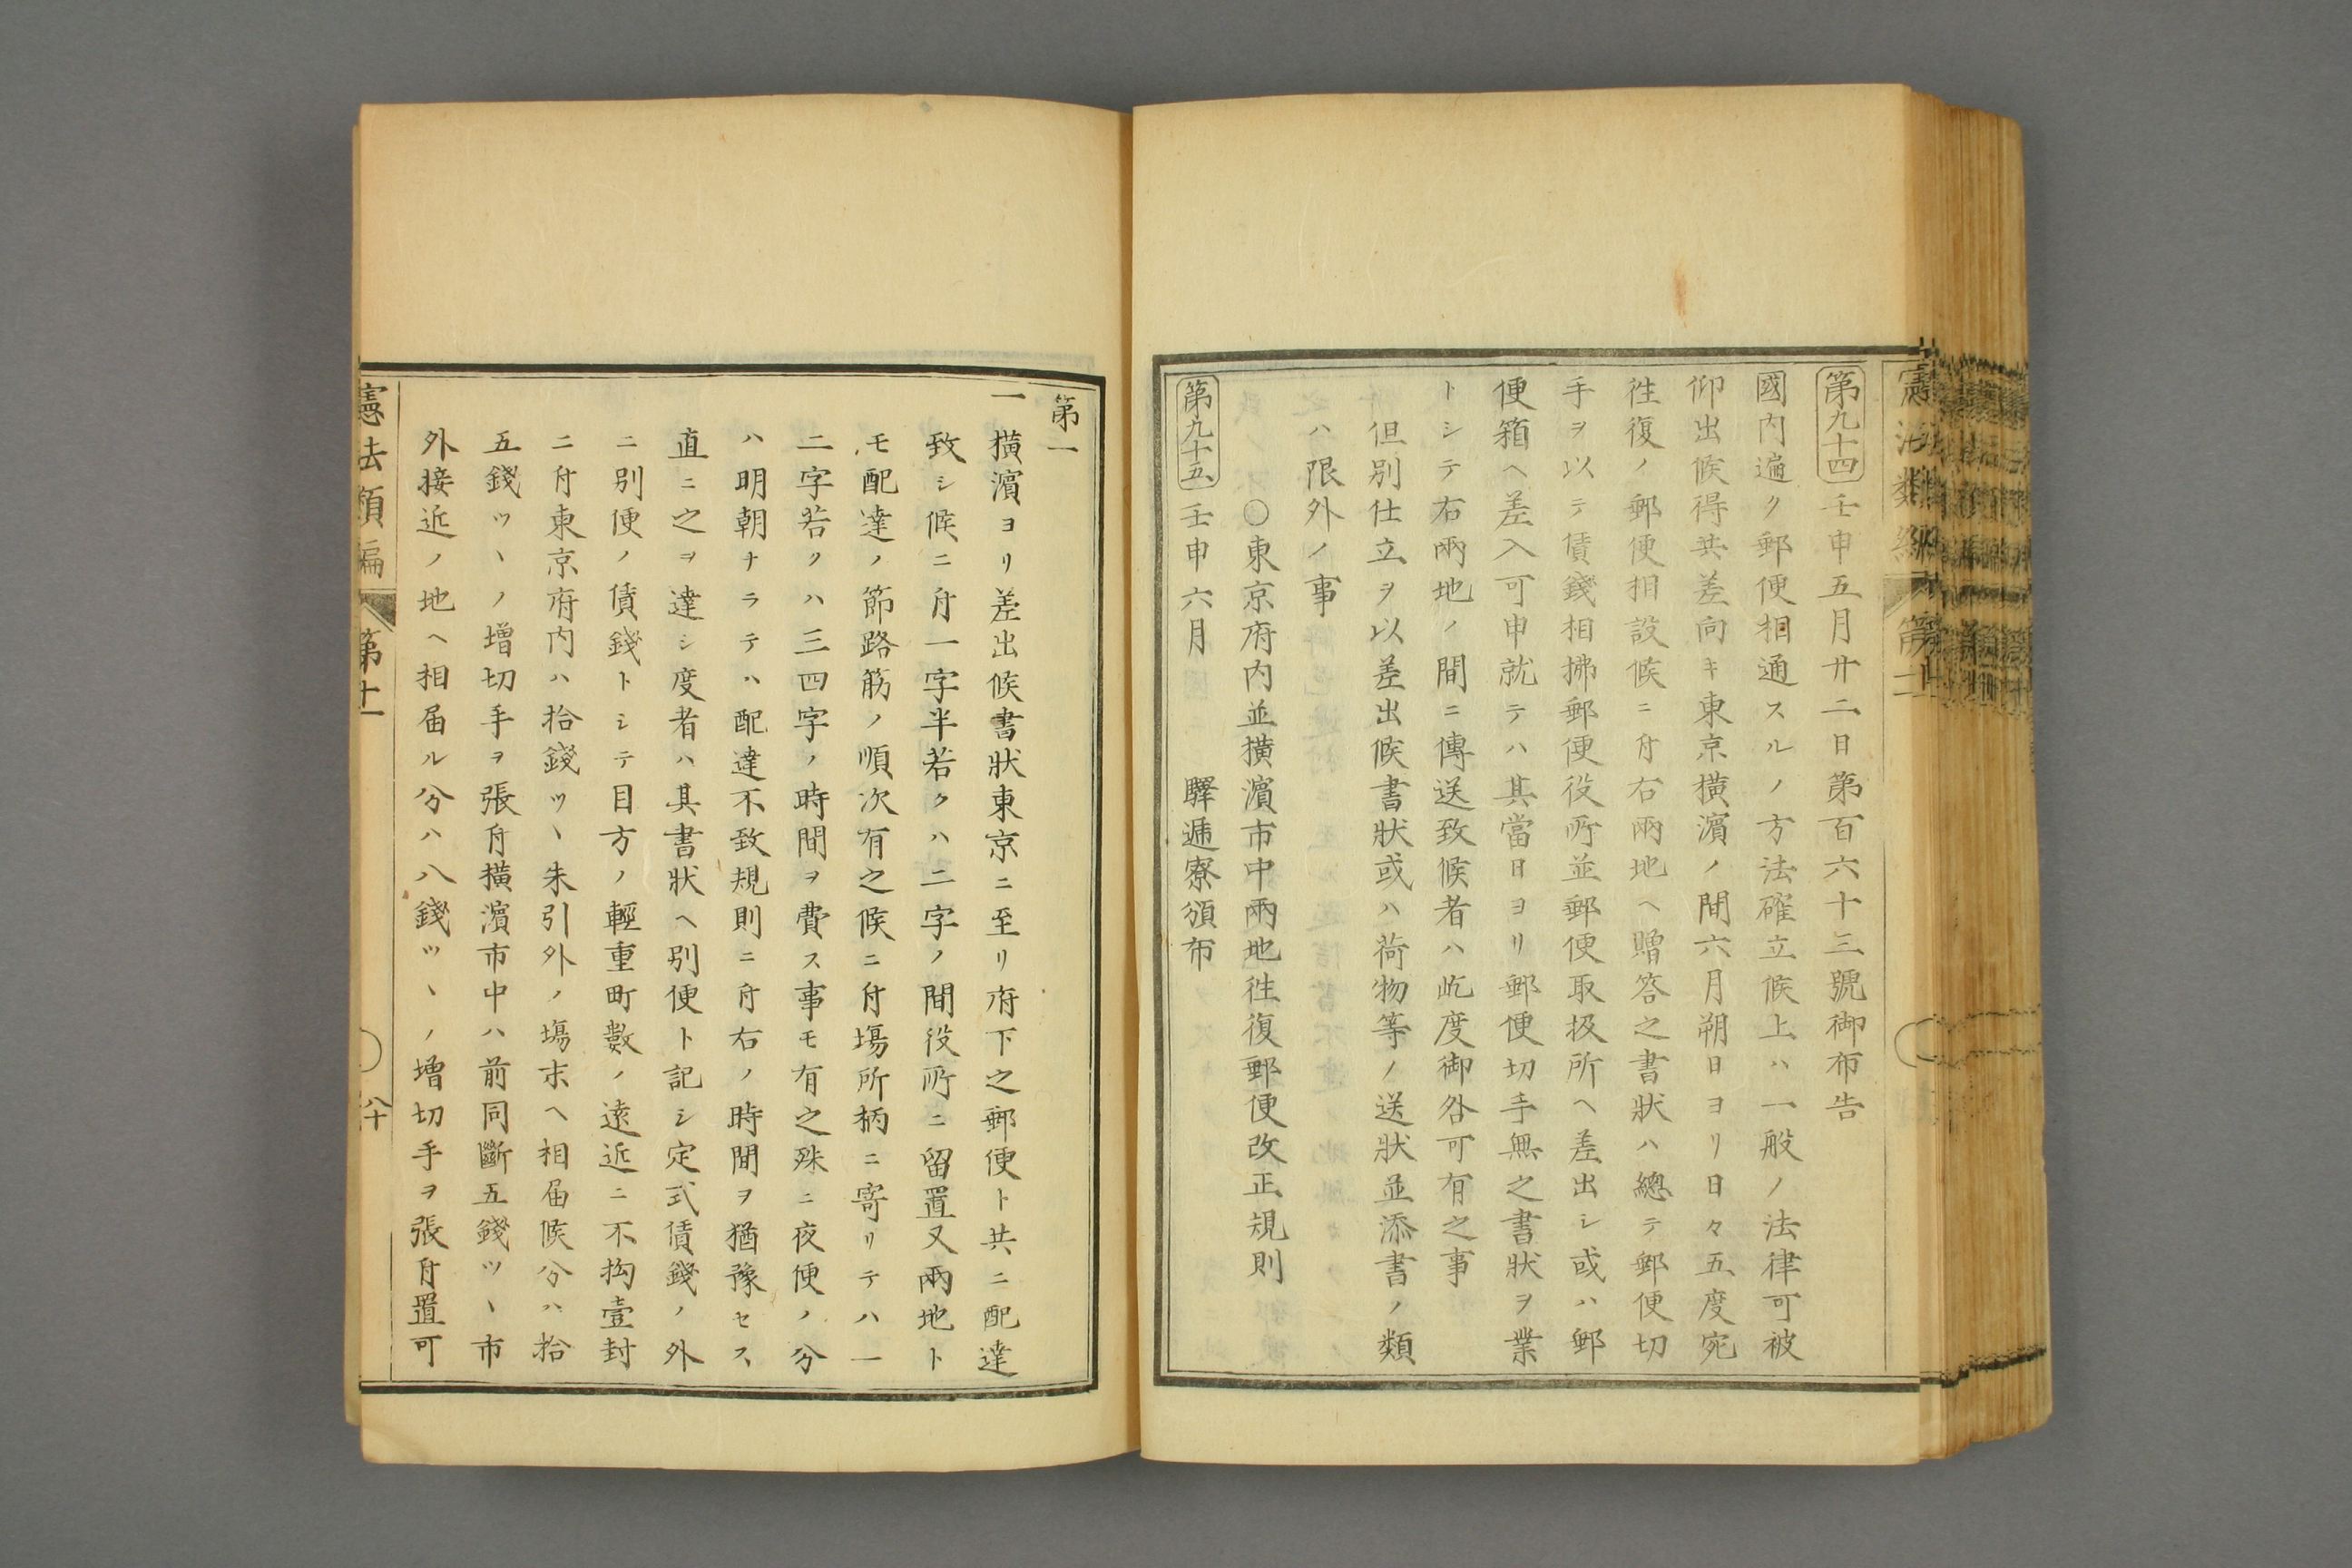 第九十四 壬申五月廿二日第百六十三號御布告
國内遍ク郵便相通スルノ方法確立候上ハ一般ノ法律可被
仰出候得共差向キ東京横濱ノ間六月朔日ヨリ日々五度宛
徃復ノ郵便相設候ニ付右兩地ヘ贈答之書狀ハ總テ郵便切
手ヲ以テ賃錢相拂郵便役所並郵便取扱所ヘ差出シ或ハ郵
便箱ヘ差入可申就テハ其當日ヨリ郵便切手無之書狀ヲ業
トシテ右兩地ノ間ニ傳送致候者ハ屹度御咎可有之事
但別仕立ヲ以差出候書狀或ハ荷物等ノ送狀並添書ノ類
ハ限外ノ事
〇東京府内並横濱市中兩地徃復郵便改正規則
第九十五 壬申六月 驛遞寮頒布
第一
一横濱ヨリ差出候書狀東京ニ至リ府下之郵便ト共ニ配達
致シ候ニ付一字半若クハ二字ノ間役所ニ留置又兩地ト
モ配達ノ節路筋ノ順次有之候ニ付塲所柄ニ寄リテハ一
二字若クハ三四字ノ時間ヲ費ス事モ有之殊ニ夜便ノ分
ハ明朝ナラテハ配達不致規則ニ付右ノ時間ヲ猶豫セス
直ニ之ヲ達シ度者ハ其書狀ヘ別便ト記シ定式賃錢ノ外
ニ別便ノ賃錢トシテ目方ノ輕重町數ノ遠近ニ不拘壹封
ニ付東京府内ハ拾錢ツヽ朱引外ノ塲末ヘ相届候分ハ拾
五錢ツヽノ増切手ヲ張付横濱市中ハ前同斷五錢ツヽ市
外接近ノ地ヘ相届ル分ハ八錢ツヽノ増切手ヲ張付置可
憲法類編 第十一 八十